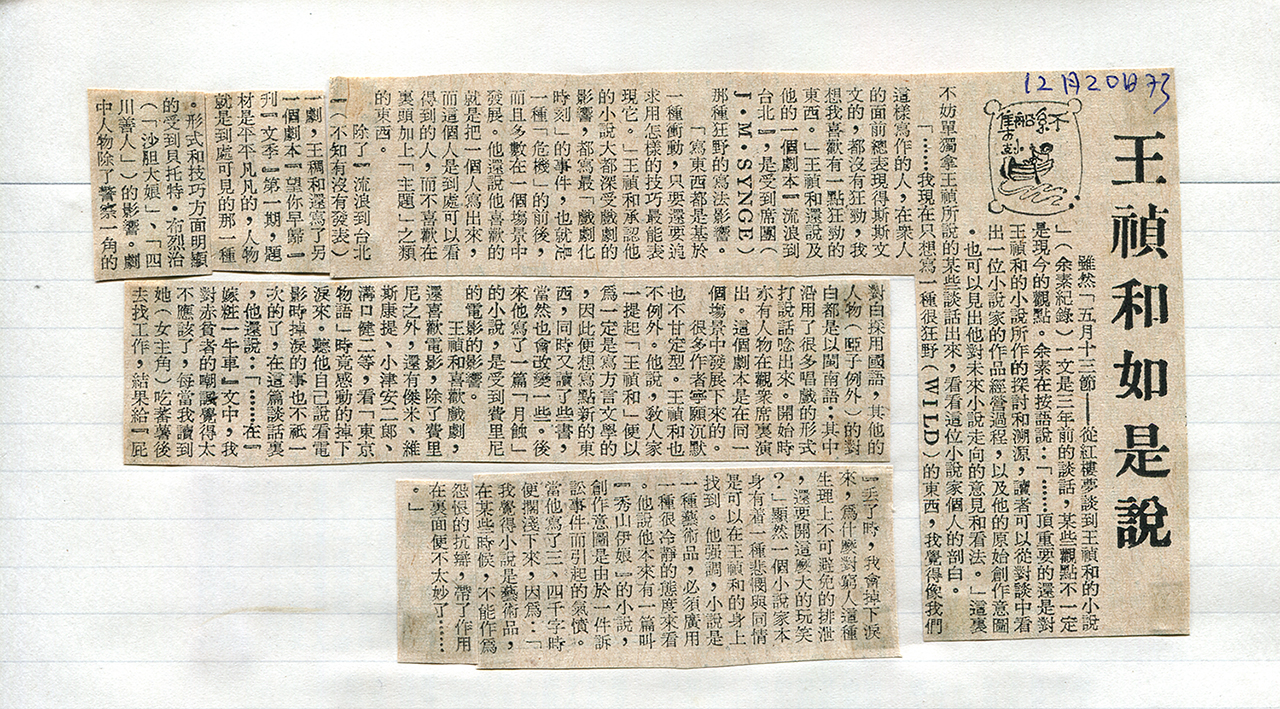 12月20日73
王禎和如是說
紙船集
方剣
雖然「五月十三節——從紅樓夢談到王禎和的小說
」(余素紀錄)一文是三年前的談話,某些觀點不一定
是現今的觀點。余素在按語說:「……頂重要的還是對
王禎和的小說所作的探討和溯源,讀者可以從對談中看
出一位小說家的作品經營過程,以及他的原始創作意圖
。也可以見出他對未來小說走向的意見和看法。」這裏
不妨單獨拿王禎所說的某些談話出來,看看這位小說家個人的剖白。
「……我現在只想寫一種很狂野(WILD)的東西,我覺得像我們
這樣寫作的人,在衆人
的面前總表現得斯斯文
文的,都沒有狂勁,我
想我喜歡有一點狂勁的
東西。」王禎和還說及
他的一個劇本「流浪到
台北」,是受到席園(
J·M·SYNGE)
那種狂野的寫法影響。
「寫東西都是基於
一種衝動,只要還要追
求用怎樣的技巧最能表
現它。」王禎和承認他
的小說大都深受戲劇的
影響,都寫最「戲劇化
時刻」的事件,也就是
一種「危機」的前後,
而且多數在一個場景中
發展。他還說他喜歡的
就是把一個人寫出來,
而這個人是到處可以看
得到的人,而不喜歡在
裏頭加上「主題」之類
的東西。
除了「流浪到台北
」(不知有沒有發表)
一劇,王禎和還寫了另
一個劇本「望你早歸」
刊『文季』第一期,題
材是平平凡凡的,人物
就是到處可見的那一種
。形式和技巧方面明顯
的受到貝托特·布烈治
(「沙胆大娘」、「四
川善人」)的影響。劇
中人物除了警察一角的
對白採用國語,其他的
人物(啞子例外)的對
白都是以閩南語·其中
沿用了很多唱戲的形式
打說話唸出來。開始時
亦有人物在觀衆席裏演
出。這個劇本是在同一
個場景中發展下來的。
很多作者寧願沉默
也不甘定型。王禎和也
不例外。他說,敎人家
一提起「王禎和」便以
爲一定是寫方言文學的
,因此便想寫點新的東
西,同時又讀了些書,
當然也會改變一些。後
來他寫了一篇「月蝕」
的小說,是受到費里尼
的電影的影響。
王禎和喜歡戲劇,
還喜歡電影,除了費里
尼之外,還有傑米、維
斯康提、小津安二郎、
溝口健二等,看「東京
物語」時竟感動的掉下
淚來。聽他自己說看電
影時掉淚的事也不祇一
次的了,在這篇談話裏
,他還說:「……在『
嫁粧一牛車』文中,我
對赤貧者的嘲諷覺得太
不應該了,每當我讀到
她(女主角)吃蕃薯後
去找工作,結果給「屁
』丟了時,我會掉下淚
來,爲什麼對窮人這種
生理上不可避免的排泄
,還要開這麼大的玩笑
?」顯然一個小說家本
身有着一種悲憫與同情
是可以在王禎和的身上
找到。他強調,小說是
一種藝術品,必須廣用
一種很冷靜的態度來看
。他說他本來有一篇叫
『秀山伊娘』的小說,
創作意圖是由於一件訴
訟事件而引起的氣憤。
當他寫了三、四千字時
便擱淺下來,因爲:「
我覺得小說是藝術品,
在某些時候,不能作爲
怨恨的抗辯,帶了作用
在裏面便不太妙了……
。」